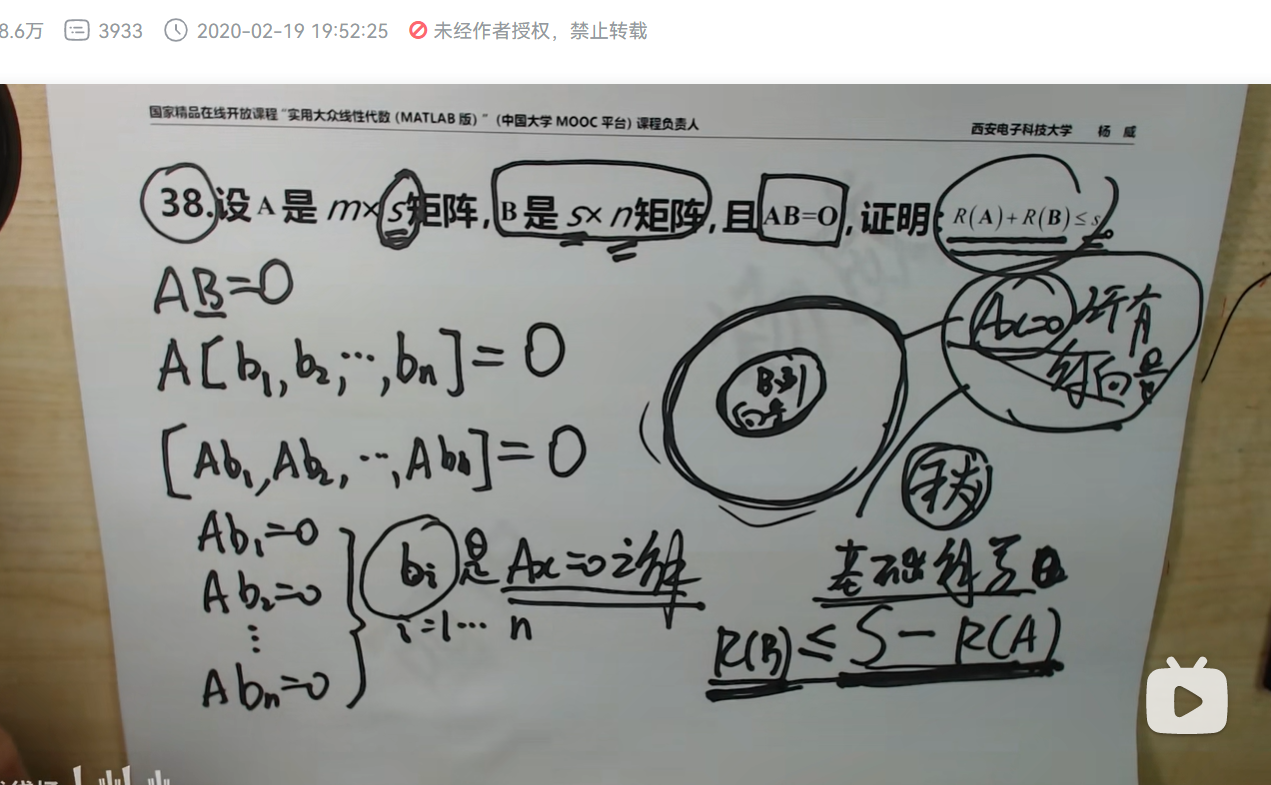 8.6万 3933 2020-02-19 19:52:25 未经作者授权，禁止转载
国家精品在线开放课程“实用大众线性代数（MATLAB 版）”（中国大学 MOOC 平台）课程负责人
西安电子科技大学 杨 威
38.设 A 是 m×s矩阵, B 是 s×n矩阵, 且 AB=O, 证明: R(A)+R(B)≤s
AB=0
A[b1, b2, ⋯, bn]=0
[Ab1, Ab2, ⋯, Abn]=0
Ab1=0
Ab2=0
⋮
Abn=0
bi 是 Ax=0之解
i=1⋯n
Ax=0 所有
解向量
B列
向量
基础解系
R(B)≤S-R(A)